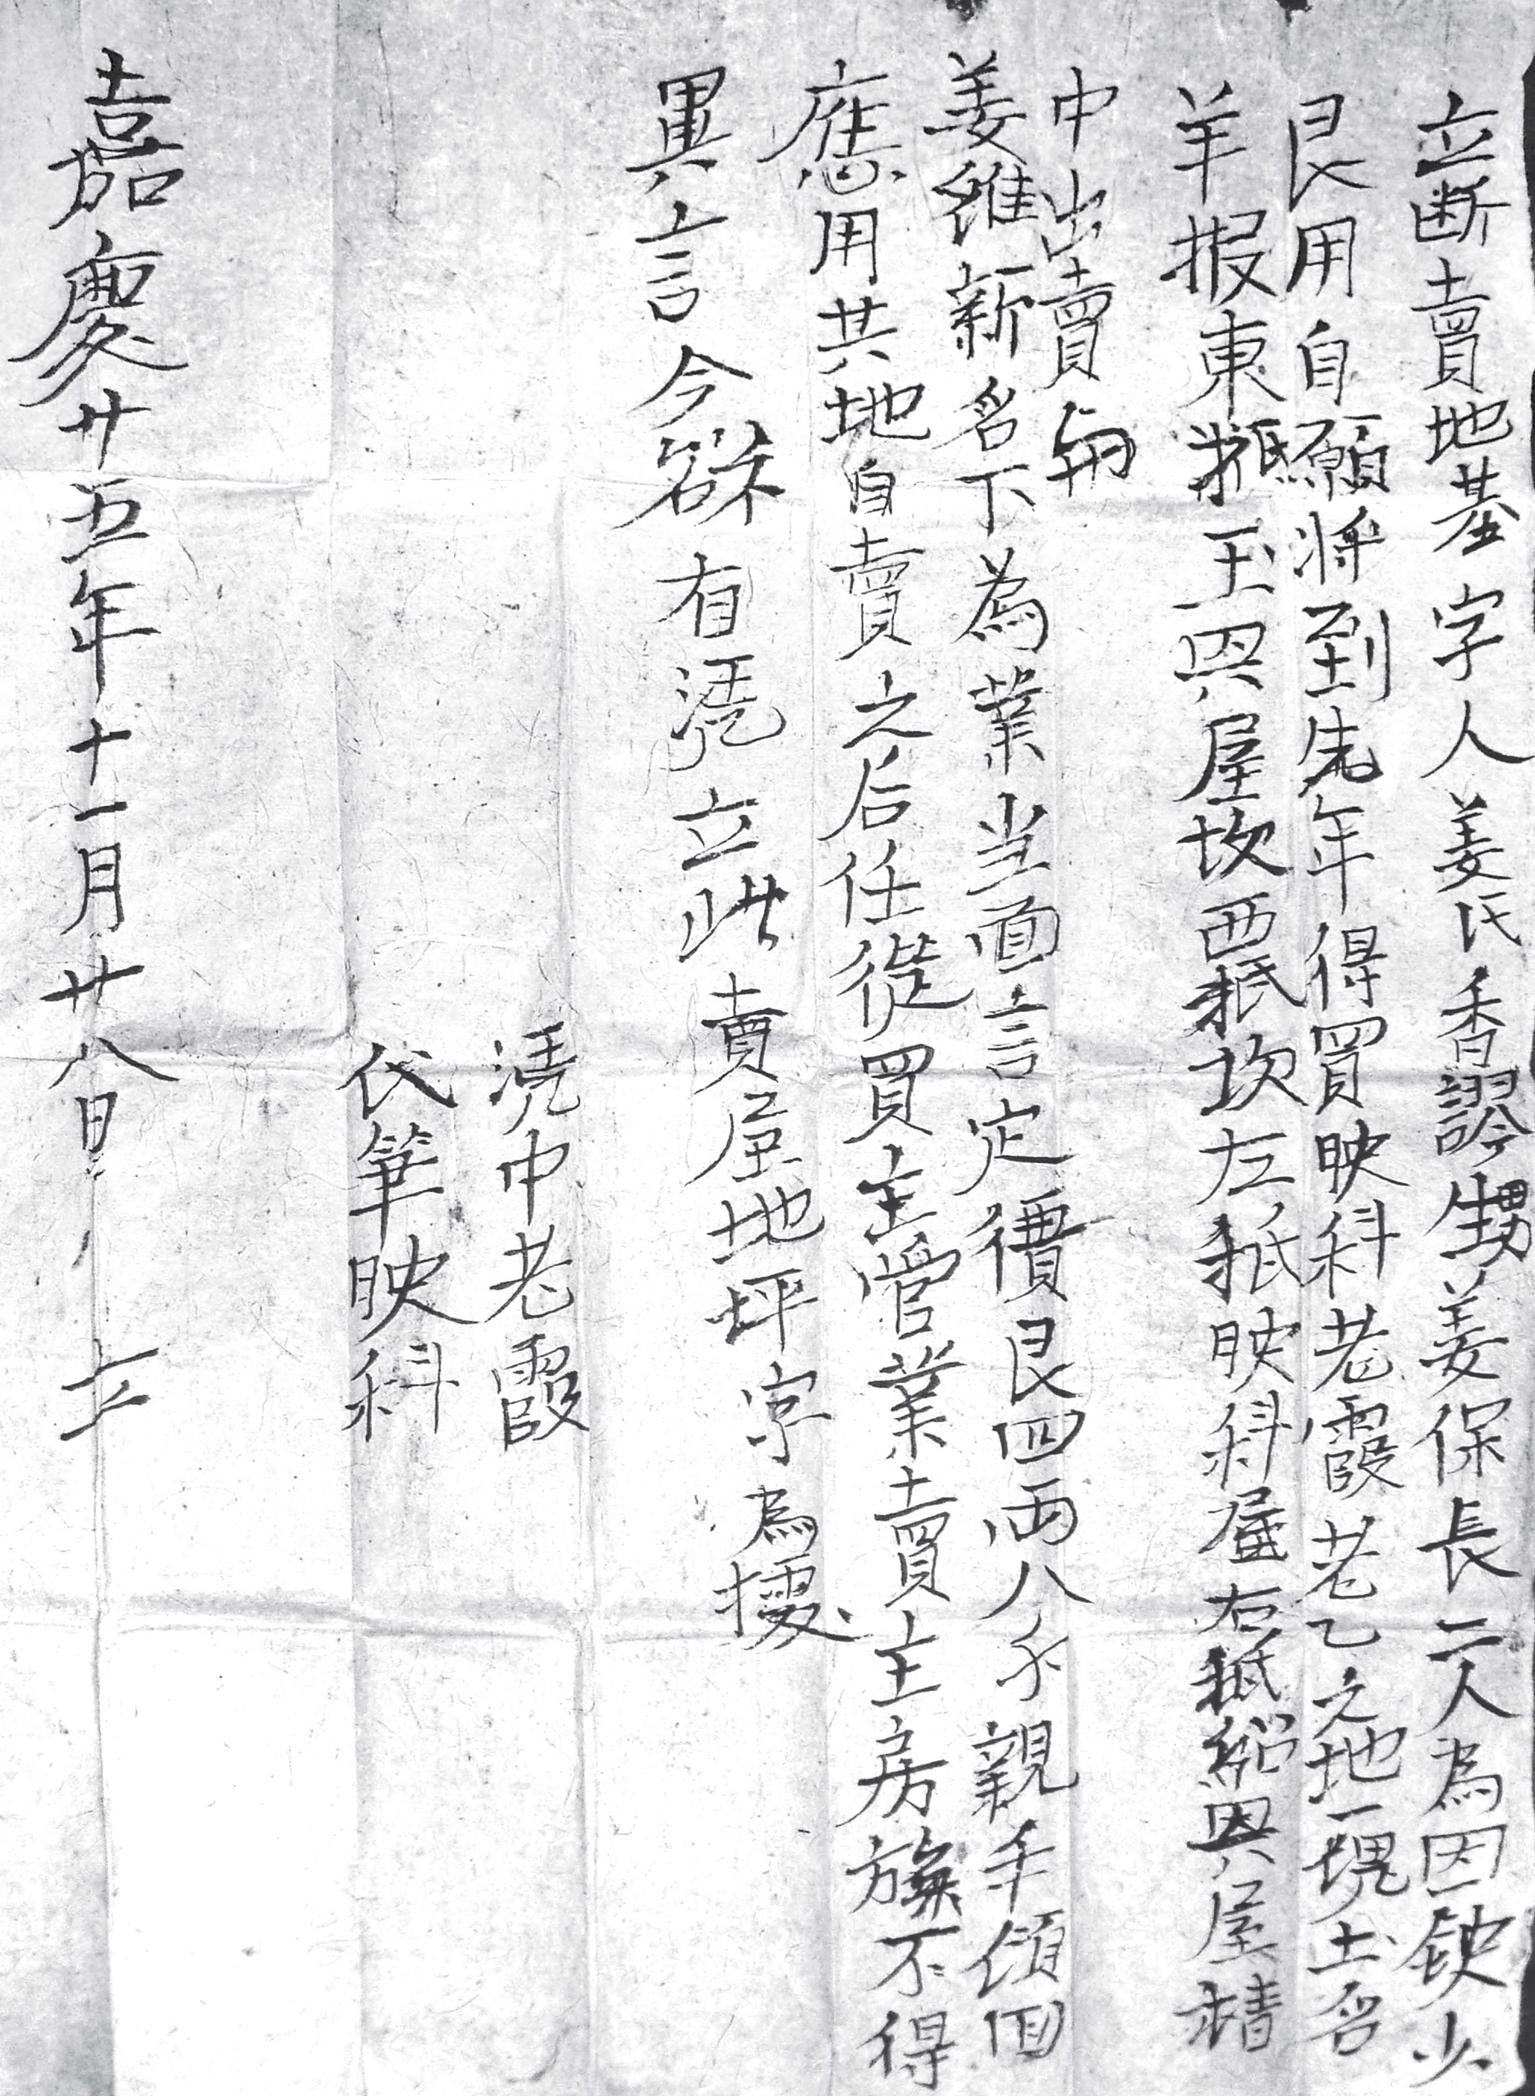 立断賣地基字人姜氏香謬甥姜保長二人為因缺少
艮用自願將到先年得買映科老霞老乙之地一塊土名
羊报東抵玉興屋坎西抵坎左抵映科屋右抵紹興屋請
中出賣與
姜維新名下為業当面言定價艮四両八千親手領回
應用其地自賣之后任從買主管業賣主房族不得
異言今欲有凴立此賣屋地坪字為據
凴中老霞
代筆映科
嘉慶廿五年十一月廿八日 立